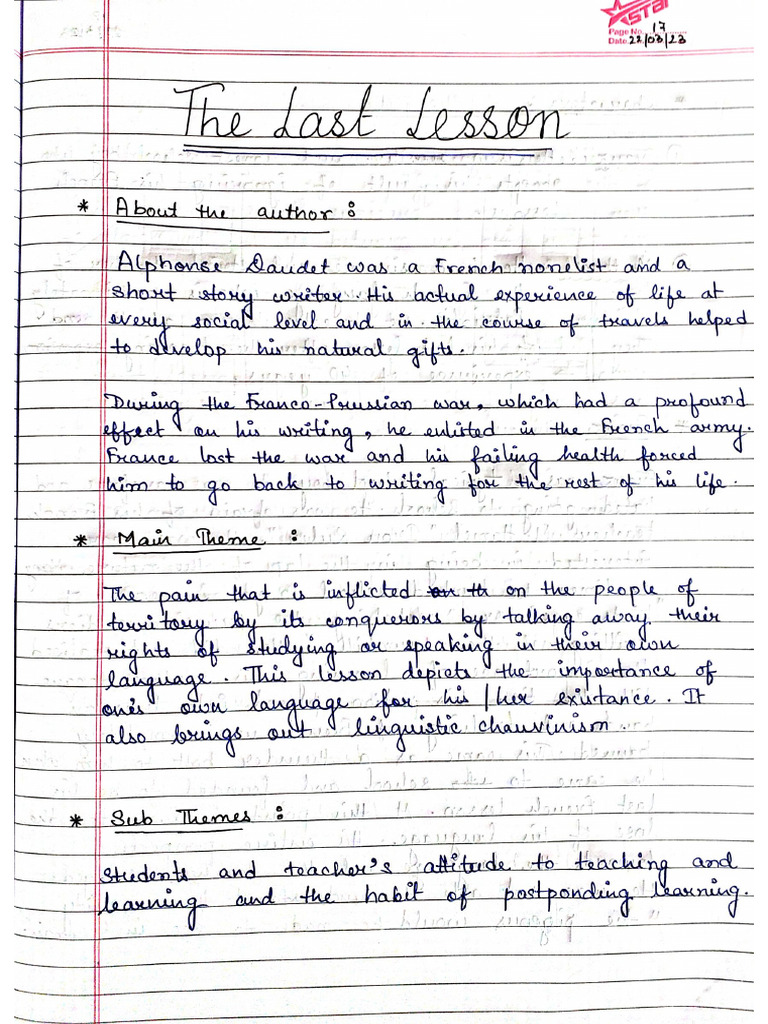 STAR
Page No. 17
Date 22/03/23
The Last Lesson
* About the author :
Alphonse Daudet was a French nonelist and a
short story writer. His actual experience of life at
every social level and in the course of travels helped
to develop his natural gifts.
During the Franco-Prussian war, which had a profound
effect on his writing, he enlisted in the French army.
France lost the war and his failing health forced
him to go back to writing for the rest of his life.
* Main Theme :
The pain that is inflicted on th on the people of
territory by its conquerors by talking away their
rights of studying or speaking in their own
language. This lesson depicts the importance of
one's own language for his/her existance. It
also brings out linguistic chauvinism.
* Sub Themes :
Students and teacher's attitude to teaching and
learning and the habit of postponding learning.